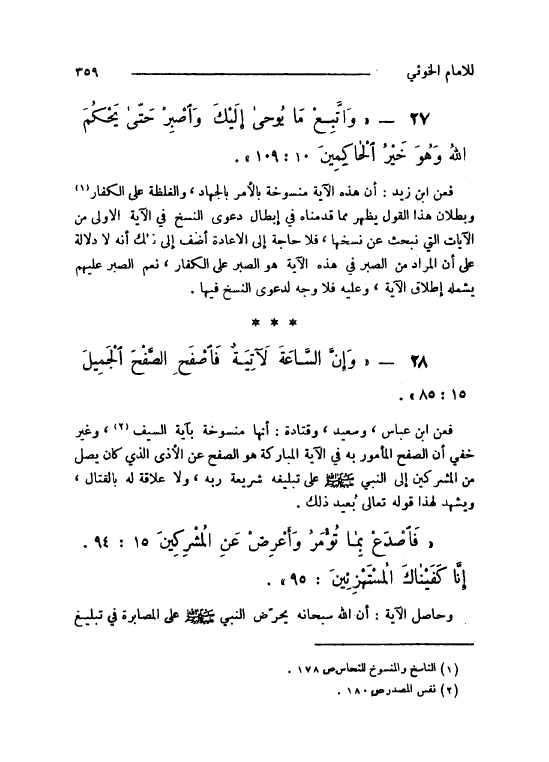 للامام الخوئي ٣٥٩
٢٧ – « وَاتَّبِعْ مَا يُوحىٰ إِلَيْكَ وَاصْبِرْ حَتّىٰ يَحْكُمَ
اللهُ وَهُوَ خَيْرُ الْحَاكِمِينَ ١٠ : ١٠٩ » .
فعن ابن زيد : أن هذه الآية منسوخة بالأمر بالجهاد ، والغلظة على الكفار (١)
وبطلان هذا القول يظهر مما قدمناه في إبطال دعوى النسخ في الآية الاولى من
الآيات التي نبحث عن نسخها ، فلا حاجة إلى الاعادة أضف إلى ذلك أنه لا دلالة
على أن المراد من الصبر في هذه الآية هو الصبر على الكفار ، نعم الصبر عليهم
يشمله إطلاق الآية ، وعليه فلا وجه لدعوى النسخ فيها .
* * *
٢٨ – « وَإِنَّ السَّاعَةَ لَآتِيَةٌ فَاصْفَحِ الصَّفْحَ الْجَمِيلَ
١٥ : ٨٥ » .
فعن ابن عباس ، وسعيد ، وقتادة : أنها منسوخة بآية السيف (٢) ، وغير
خفي أن الصفح المأمور به في الآية المباركة هو الصفح عن الأذى الذي كان يصل
من المشركين إلى النبي ﷺ على تبليغه شريعة ربه ، ولا علاقة له بالقتال ،
ويشهد لهذا قوله تعالى بُعيد ذلك .
« فَاصْدَعْ بِمَا تُؤْمَرُ وَأَعْرِضْ عَنِ الْمُشْرِكِينَ ١٥ : ٩٤ .
إِنَّا كَفَيْنَاكَ الْمُسْتَهْزِئِينَ : ٩٥ » .
وحاصل الآية : أن الله سبحانه يحرّض النبي ﷺ على المصابرة في تبليغ
(١) الناسخ والمنسوخ للنحاس ص ١٧٨ .
(٢) نفس المصدر ص ١٨٠ .